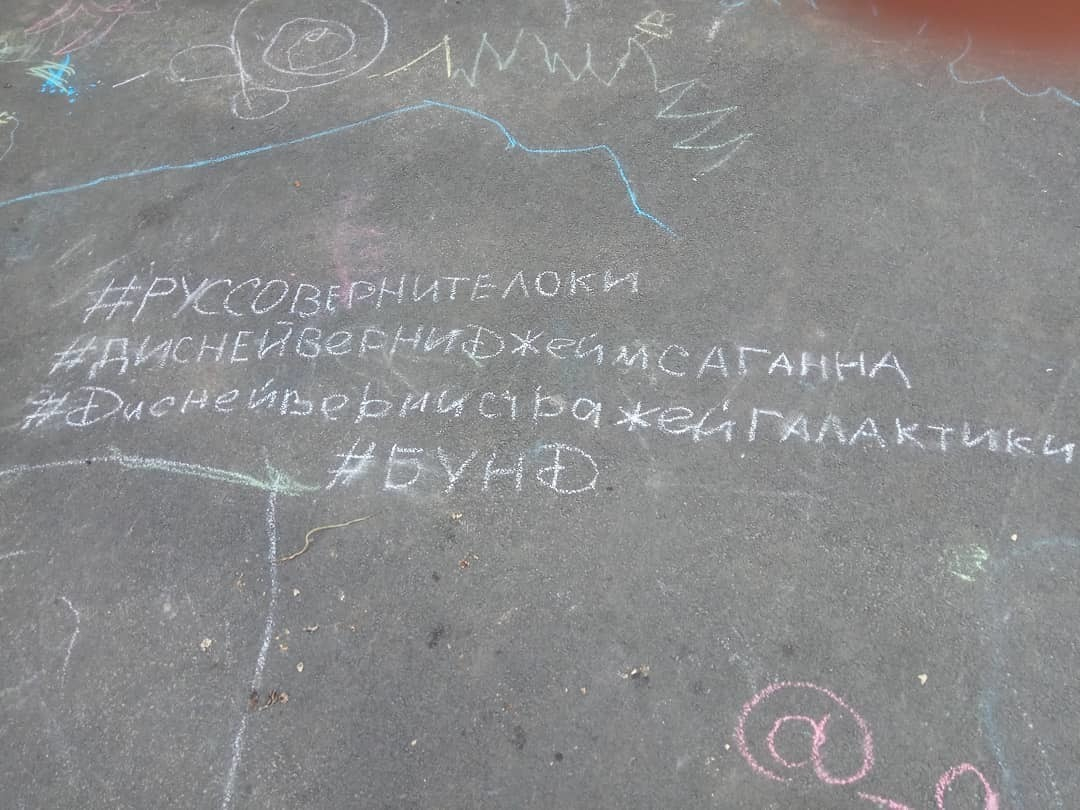 #РУССОВЕРНИТЕЛОКИ
#ДИСНЕЙВеРНИДжейМСАГАННА
#ДиснейвернистражейГАЛАКТИКИ
#БУНД
@